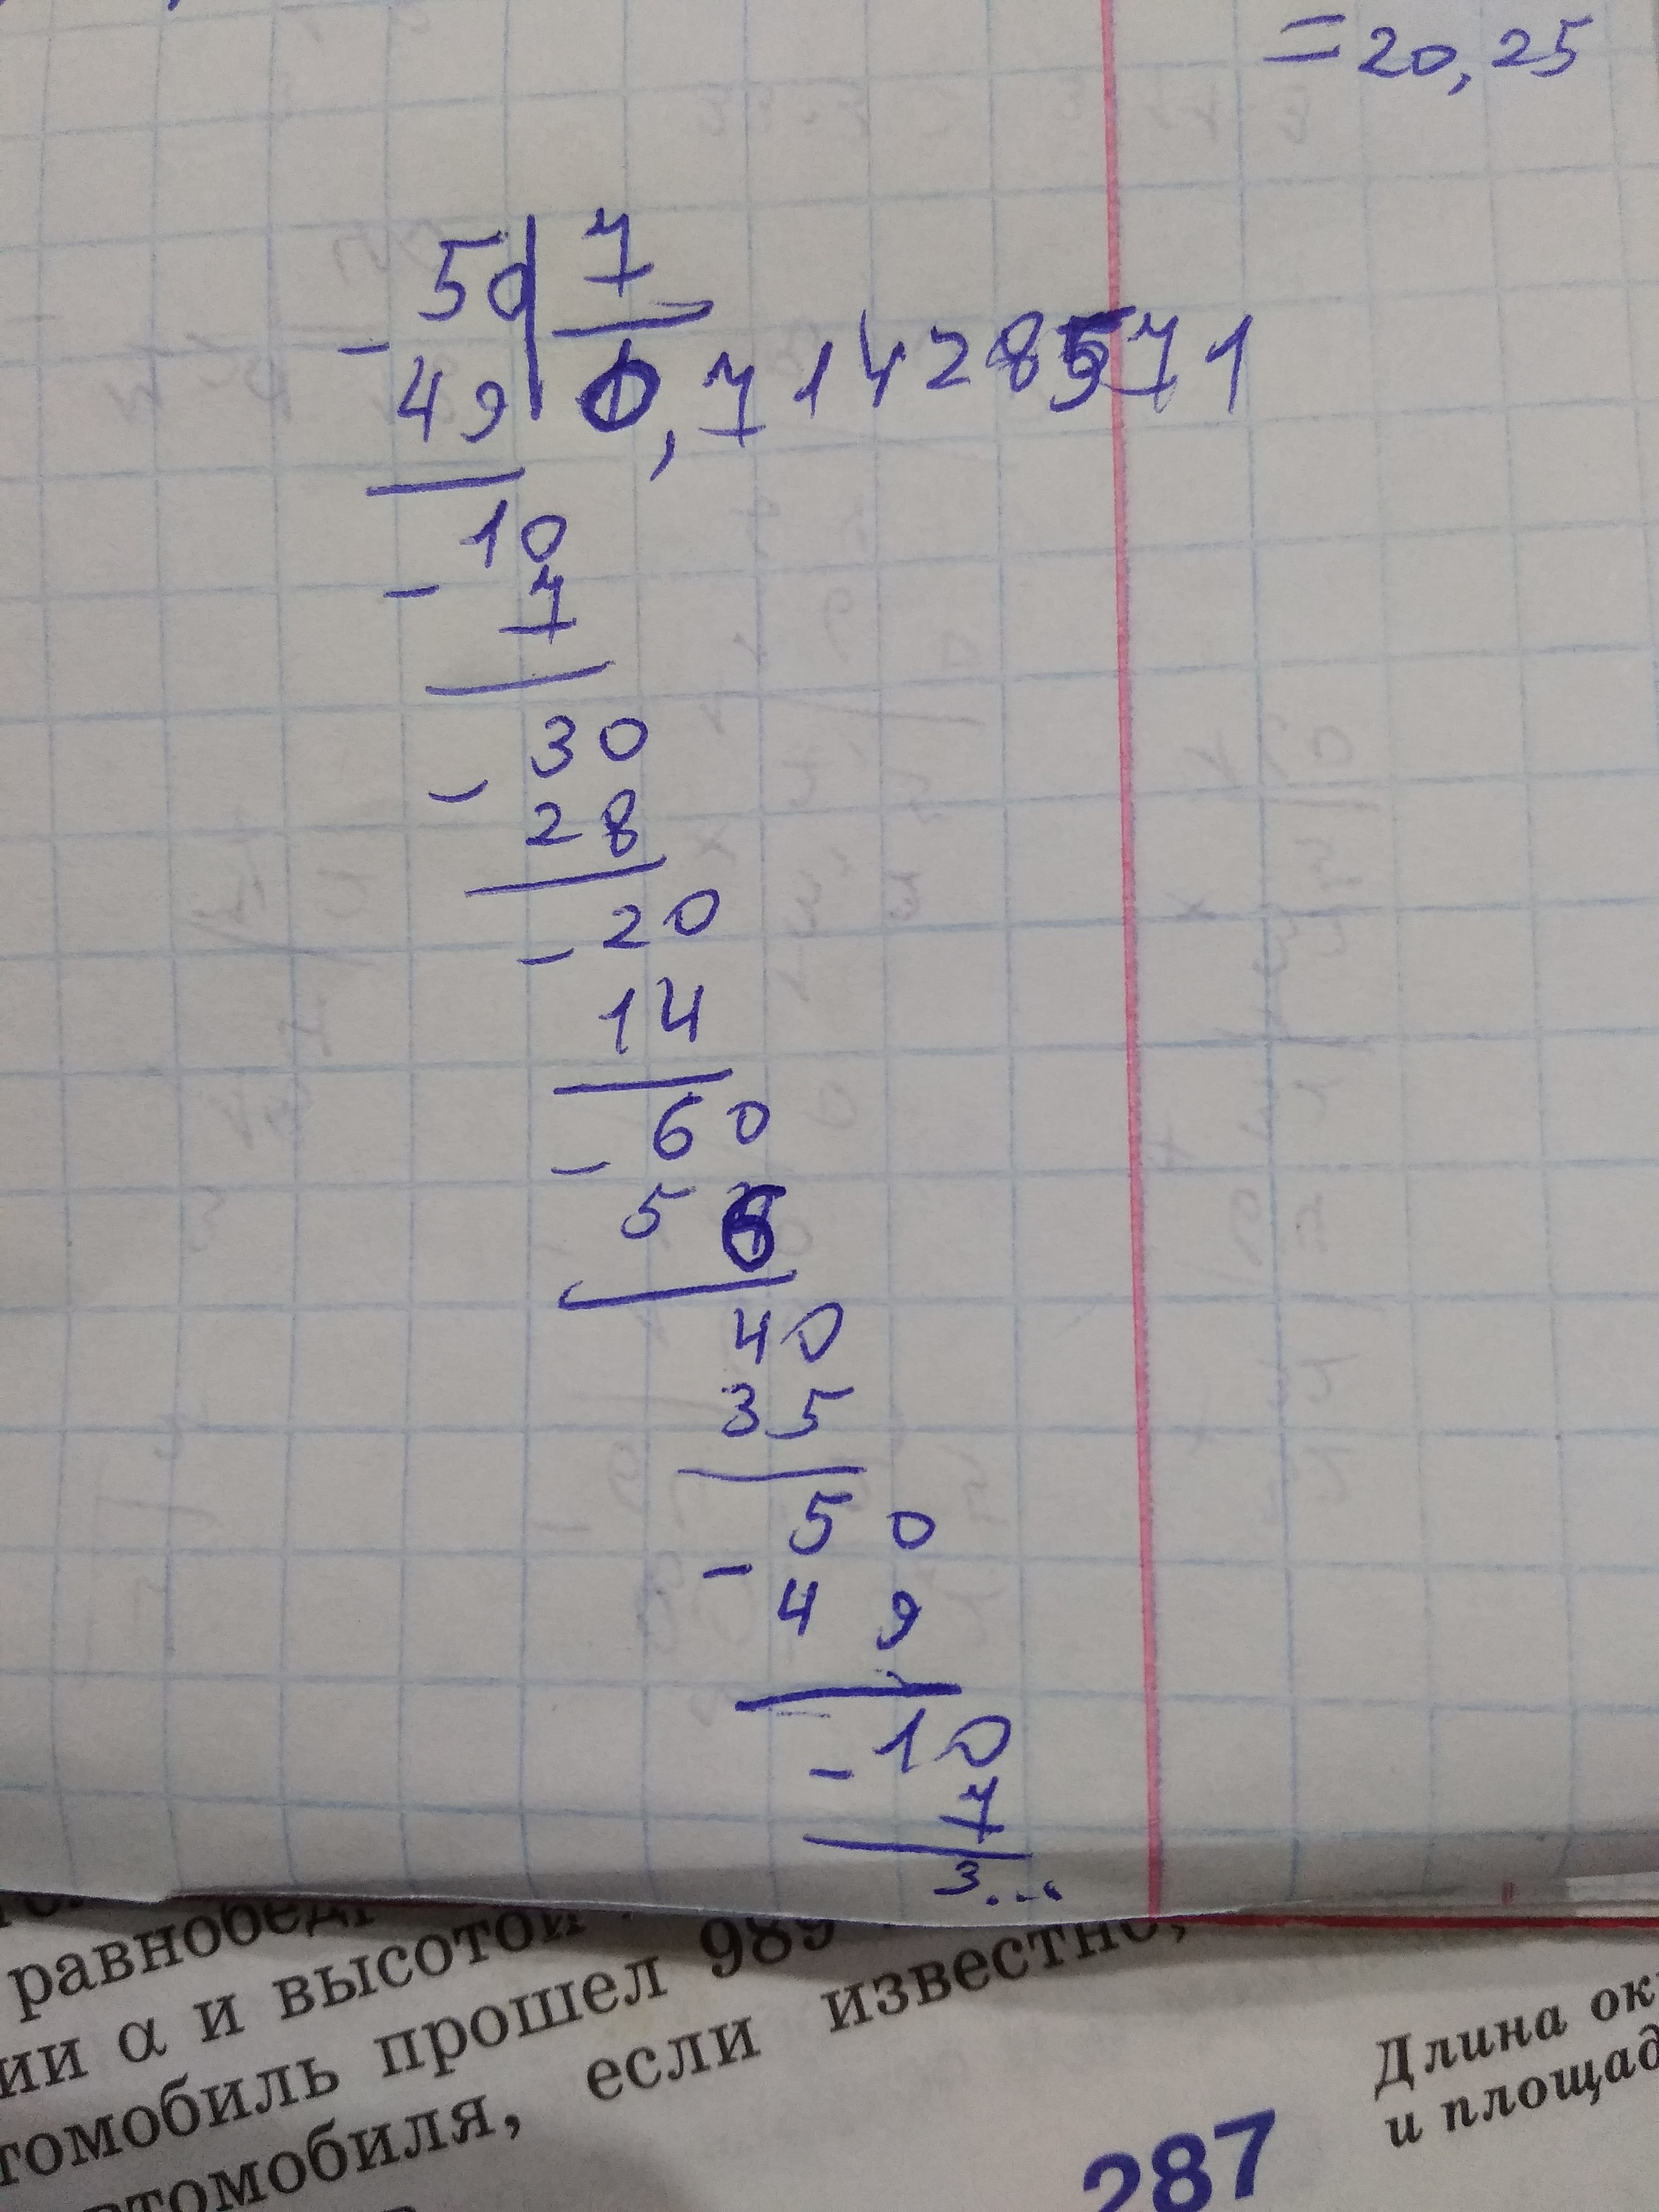 = 20,25
50 7
- 49 0,71428571
10
- 7
30
- 28
- 20
14
60
- 56
40
35
50
- 49
10
- 7
3...
равнобед
ии α и высотой
томобиль прошел 989
втомобиля, если известно,
Длина ок
и площад
287